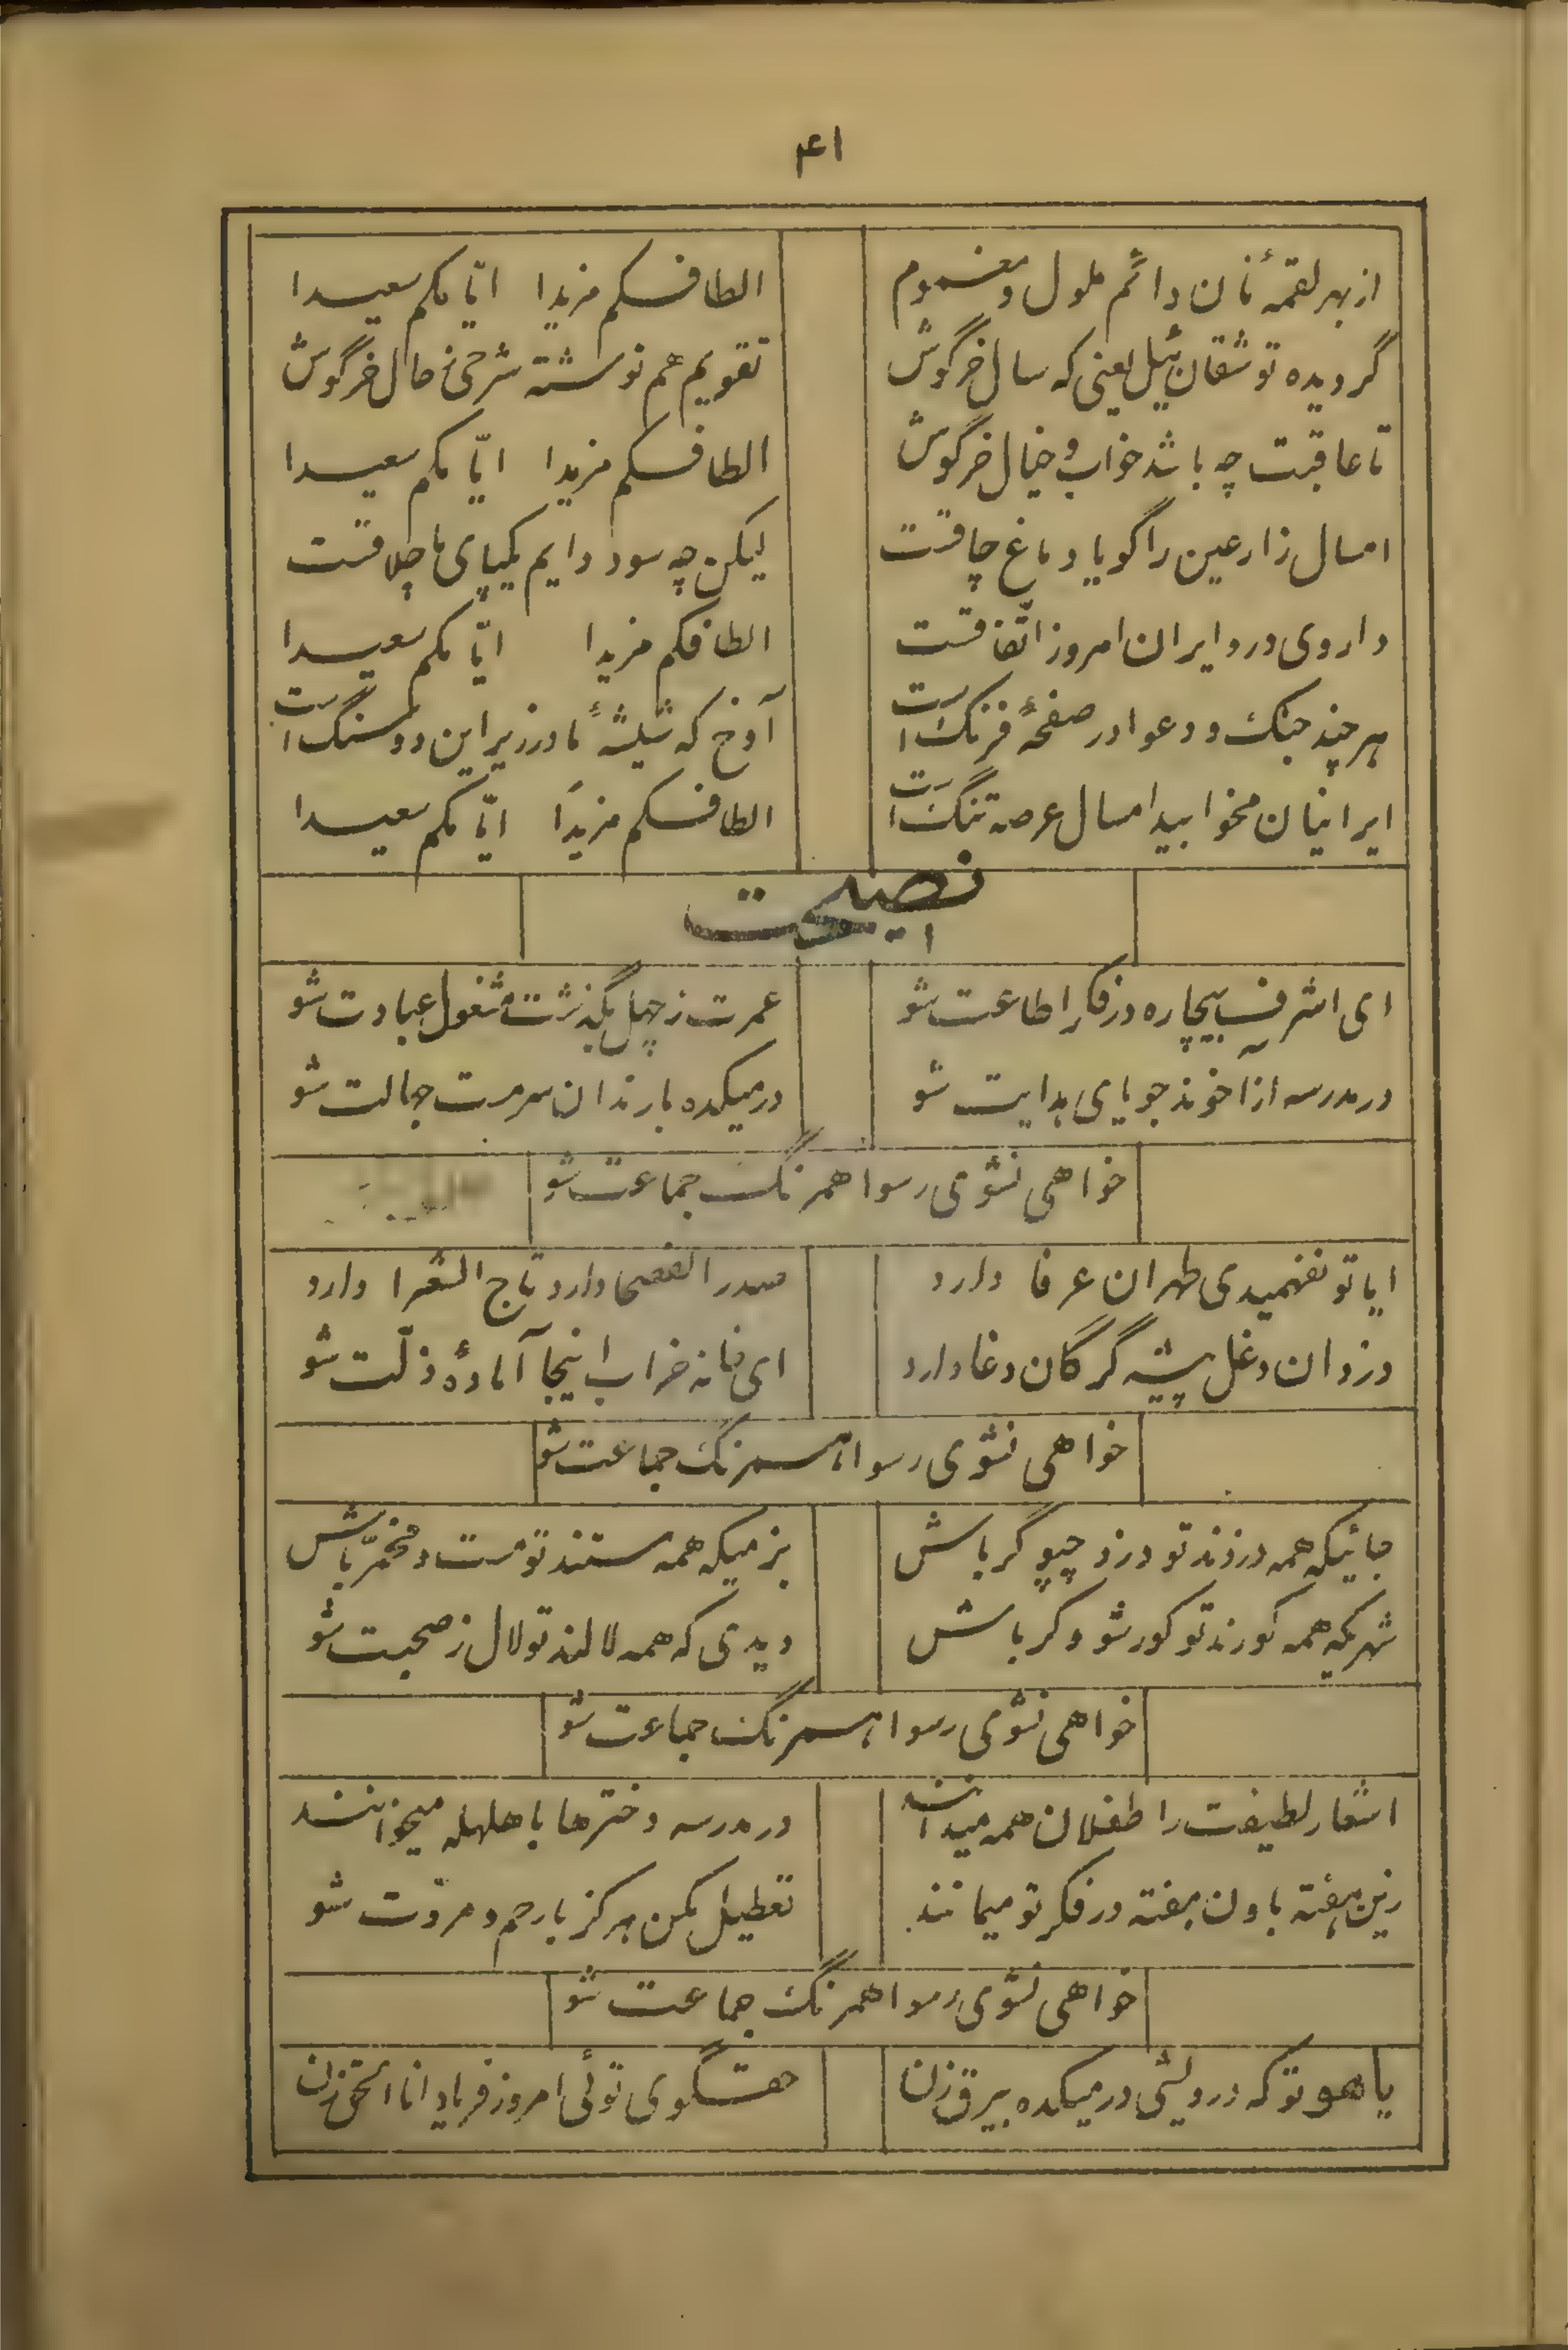 ۴۱
از بهر لقمهٔ نان دائم ملول و مغموم    الطافکم مزیدا ایّامکم سعیدا
گردیده توشقان ئیل یعنی که سال خرگوش    تقویم هم نوشته شرحی ز حال خرگوش
تا عاقبت چه باشد خواب و خیال خرگوش    الطافکم مزیدا ایّامکم سعیدا
امسال زارعین را گویا دماغ چاقست    لیکن چه سود دایم یکپای ما چلاقست
داروی درد ایران امروز اتّفاقست    الطافکم مزیدا ایّامکم سعیدا
هر چند جنک و دعوا در صفحهٔ فرنک است    آوخ که شیشهٔ ما در زیر این دو سنگ است
ایرانیان مخوابید امسال عرصه تنگ است    الطافکم مزیدَا ایّامکم سعیدا
نصیحت
ای اشرف بیچاره در فکر اطاعت شو    عمرت ز چهل بگذشت مشغول عبادت شو
در مدرسه از اخوند جویای هدایت شو    در میکده با رندان سرمست جهالت شو
خواهی نشوی رسوا همرنک جماعت شو
ایا تو نفهمیدی طهران عرفا دارد    صدر الفصحا دارد تاج الشعرا دارد
دزدان دغل پیشه گرگان دغا دارد    ای خانه خراب اینجا آمادهٔ ذلّت شو
خواهی نشوی رسوا همرنک جماعت شو
جائیکه همه دزدند تو دزد چپو گر باش    بزمیکه همه مستند تو مست و مخمّر باش
شهریکه همه کورند تو کور شو و کر باش    دیدی که همه لالند تو لال ز صحبت شو
خواهی نشوی رسوا همرنک جماعت شو
اشعار لطیفت را طفلان همه میدانند    در مدرسه دخترها با هلهله میخوانند
زین هفته باون هفته در فکر تو میمانند    تعطیل مکن هرکز با رحم و مروّت شو
خواهی نشوی رسوا همرنک جماعت شو
یاهو تو که درویشی در میکده بیرق زن    حقگوی توئی امروز فریاد انا الحق زن